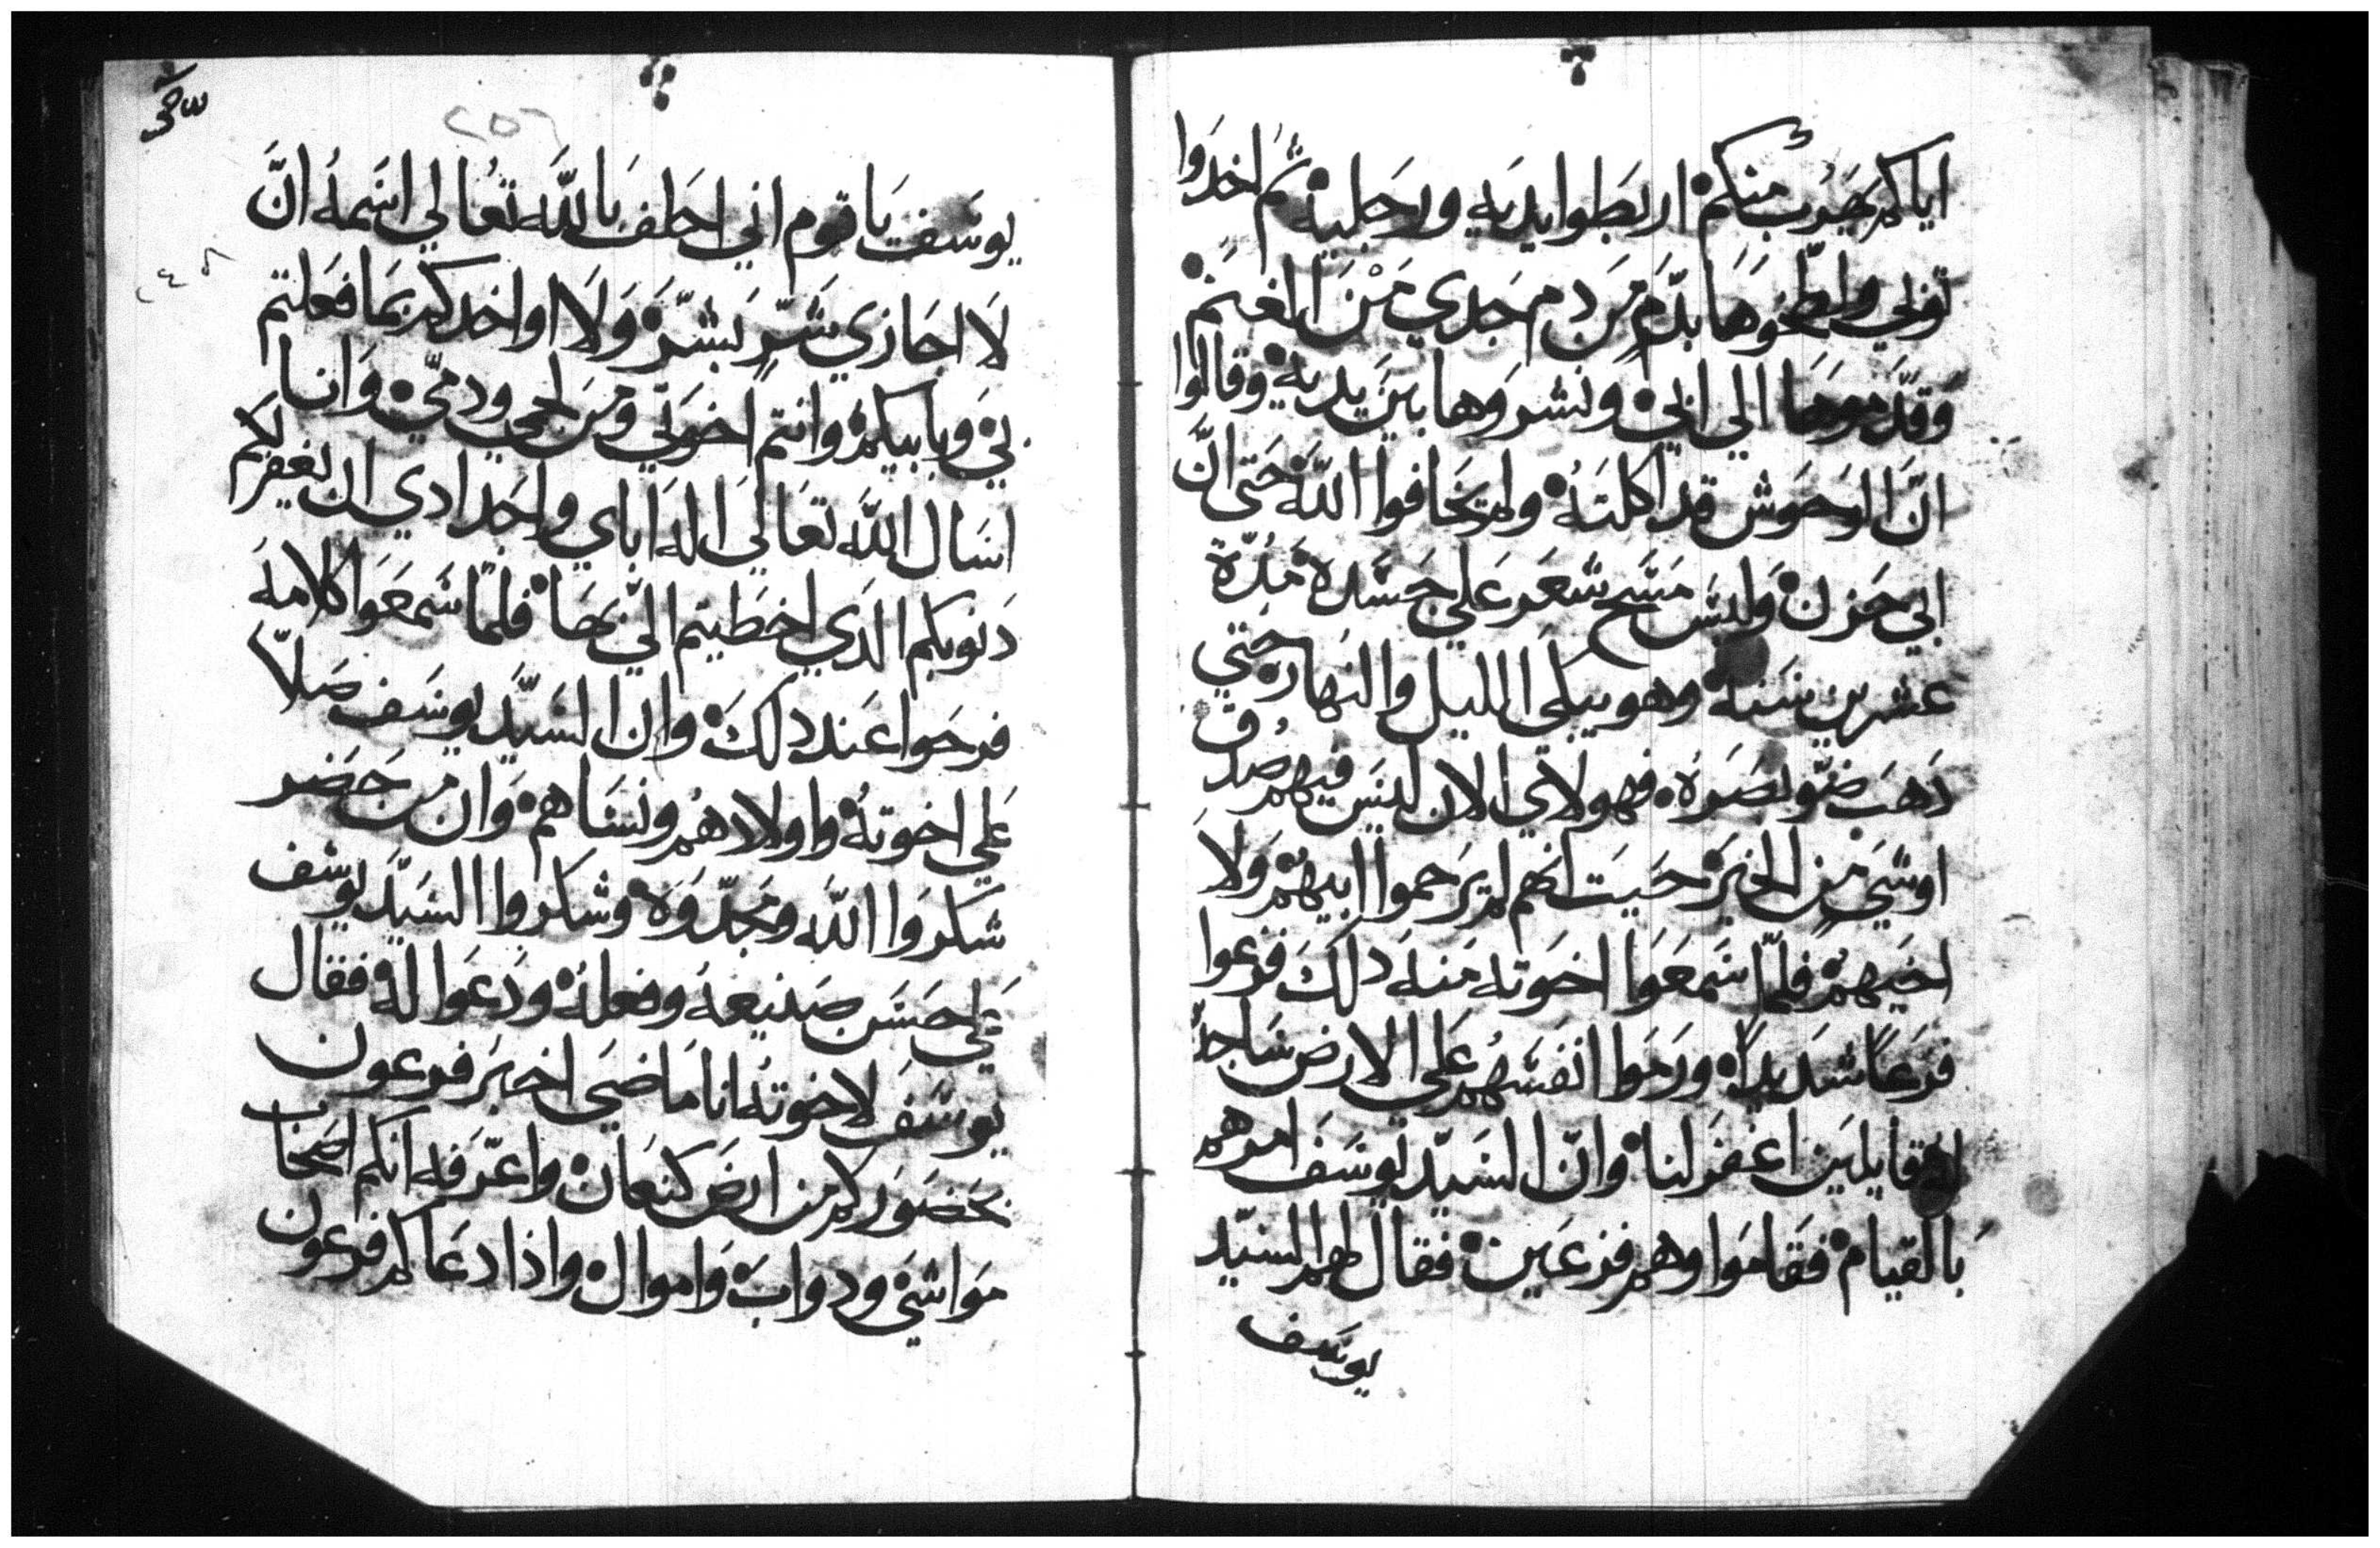 اياكم يهرب منكم اربطوا يديه ورجليه ثم اخدوا
توبي ولطخوها بدم من دم جدي من الغنم
وقدموها الي ابي ونشروها بين يديه وقالوا
ان الوحوش قد اكلته ولم تخافوا الله حتى ان
ابي حزن ولبس مسح شعر علي جسده مدة
عشرين سنه وهو يبكي الليل والنهار حتي
دهب ضو بصره فهولاي الان ليس فيهم صدق
اوشي من الخير حيت انهم لم يرحموا ابيهم ولا
اخيهم فلما سمعوا اخوته منه دلك فزعوا
فزعا شديدا ورموا انفسهم علي الارض ساجد
له قايلين اغفر لنا وان السيد يوسف امرهم
بالقيام فقاموا وهم فزعين فقال لهم السيد
يوسف
٢٥٦
يوسف يا قوم اني احلف بالله تعالي اسمه ان
لا اجازي شر بشر ولا اواخدكم بما فعلتم
بي وبابيكم وانتم اخوتي ومن لحمي ودمي وانا
اسال الله تعالي اله اباي واجدادي ان يغفر لكم
دنوبكم الدي اخطيتم الي بها فلما سمعوا كلامه
فرحوا عند دلك وان السيد يوسف صلا
علي اخوته واولادهم ونساهم وان من حضر
شكروا الله ومجدوه وشكروا السيد يوسف
علي حسن صنيعه وفعله ودعوا له فقال
يوسف لاخوته انا ماضي اخبر فرعون
بحضوركم من ارض كنعان واعرفه انكم اصحاب
مواشي ودواب واموال واذا دعاكم فرعون